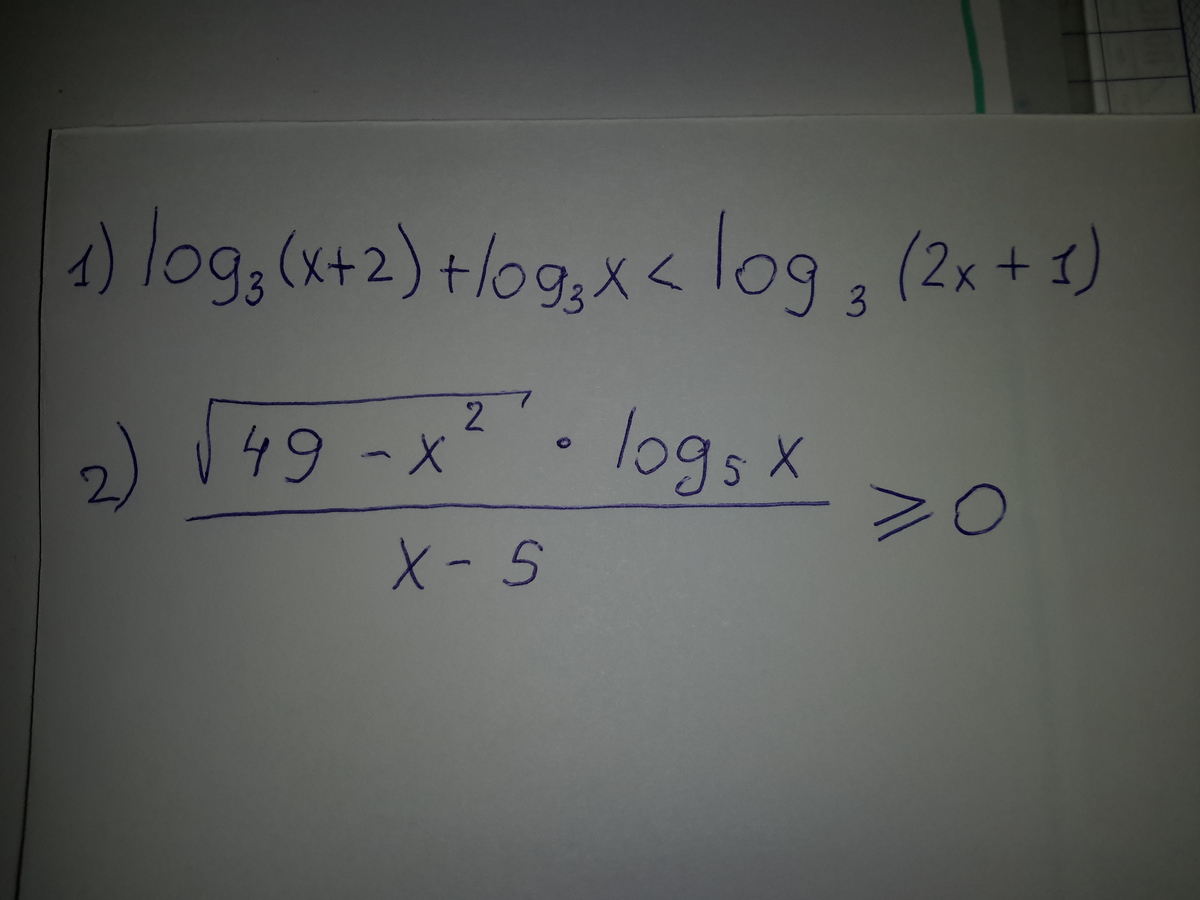 1) log₃(x+2)+log₃x < log ₃ (2x+1)
2) √(49-x²) · log₅ x
x-5
⩾0